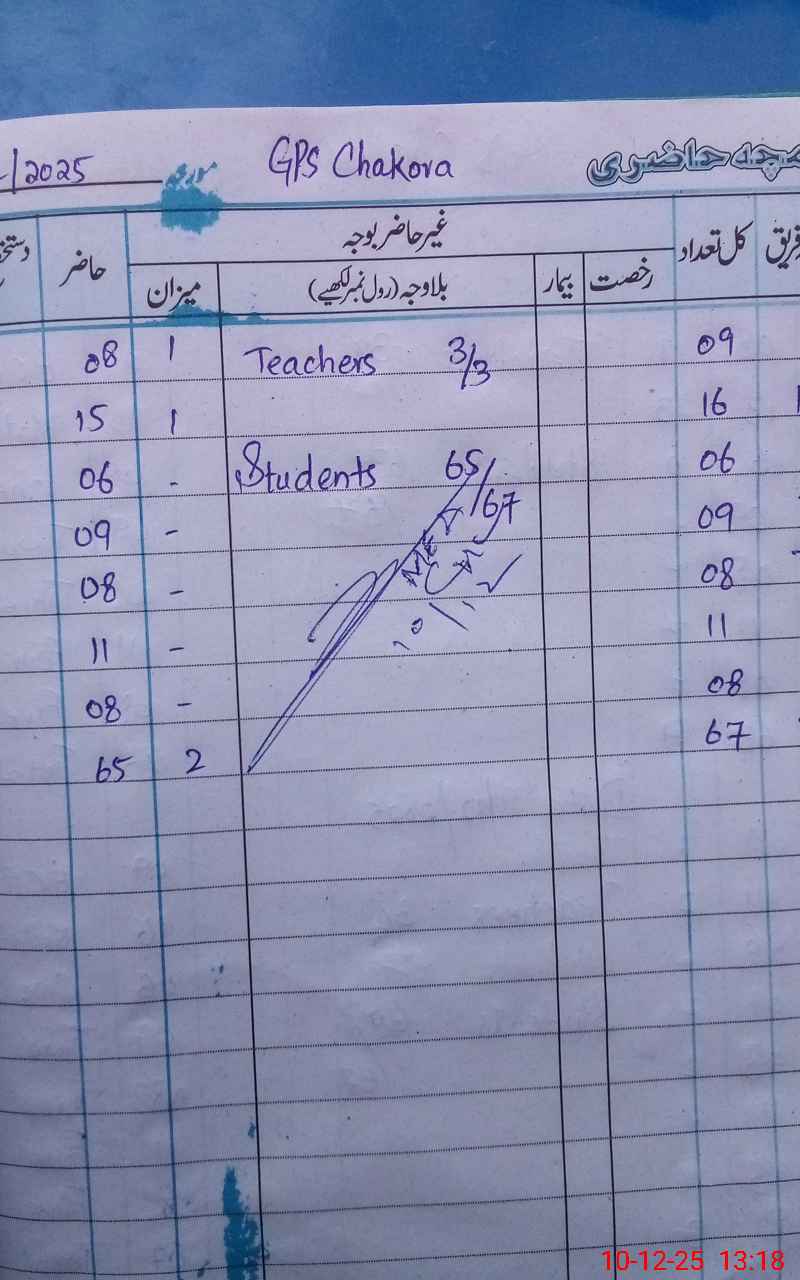 /2025 مورخہ GPS Chakora حاضری
غیر حاضر بوجہ
کل تعداد رخصت بیمار بلاوجہ (رول نمبر لکھیے) میزان حاضر
08 1 Teachers 3/3 09
15 1 16
06 - Students 65/67 06
09 - 09
08 - 08
11 - 11
08 - 08
65 2 67
10-12-25 13:18